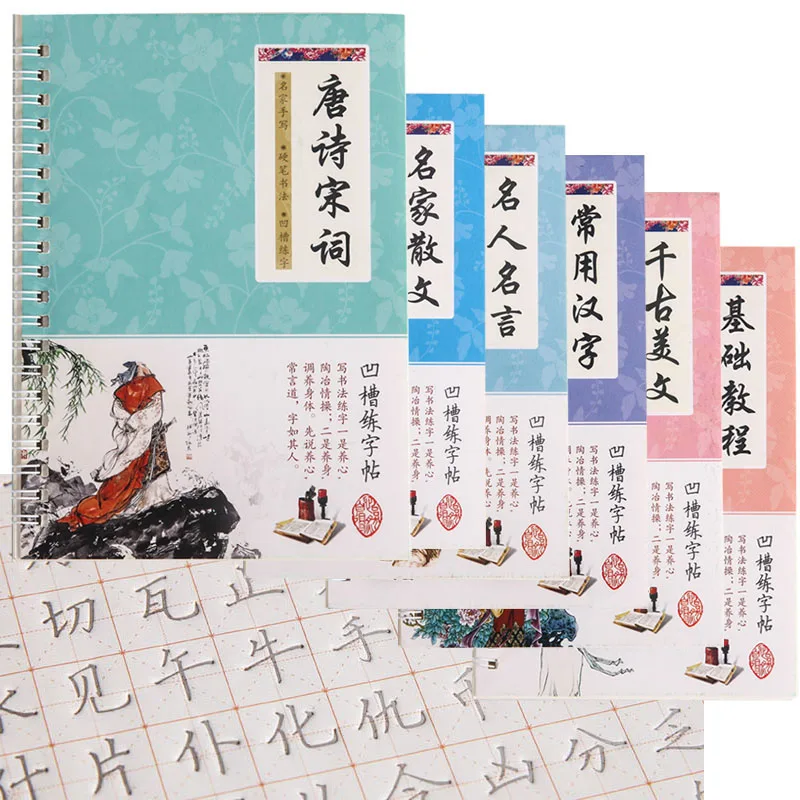 唐诗宋词
名家手写 硬笔书法 凹槽练字
凹槽练字帖
写书法练字一是养心,
陶冶情操;二是养身,
调养身体。先说养心,
常言道,字如其人。
名家散文
凹槽练字帖
写书法练字一是养心,
陶冶情操;二是养身
名人名言
凹槽练字帖
写书法练字一是养心,
陶冶情操;二是养身,
调养身体。先说养心,
常用汉字
凹槽练字帖
写书法练字一是养心,
陶冶情操;二是养身
千古美文
凹槽练字帖
写书法练字一是养心,
陶冶情操;二是养身
基础教程
凹槽练字帖
写书法练字一是养心,
陶冶情操;二是养身
切瓦正
见午牛手
仆化仇
什片山分乏